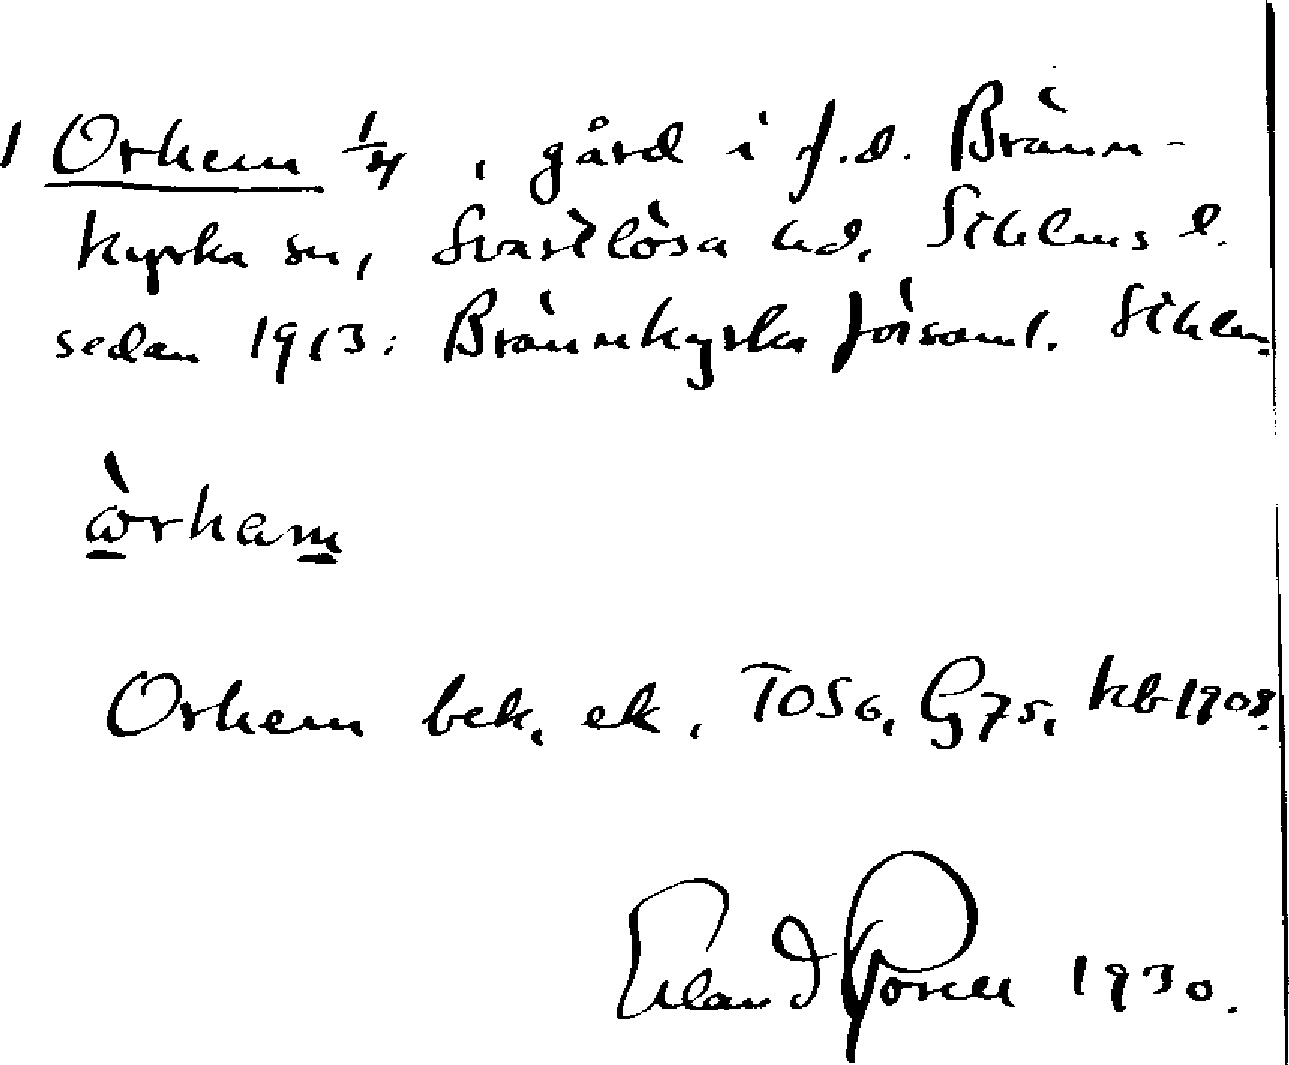 1 Orhem 1/4, gård i f.d. Bränn-
kyrka sn, Svartlösa hd, Sthlms l.
sedan 1913: Brännkyrka församl. Sthlm.
òrham
Orhem bek. ek. TOS6, G75, kb 1908.
Erland Rosell 1930.